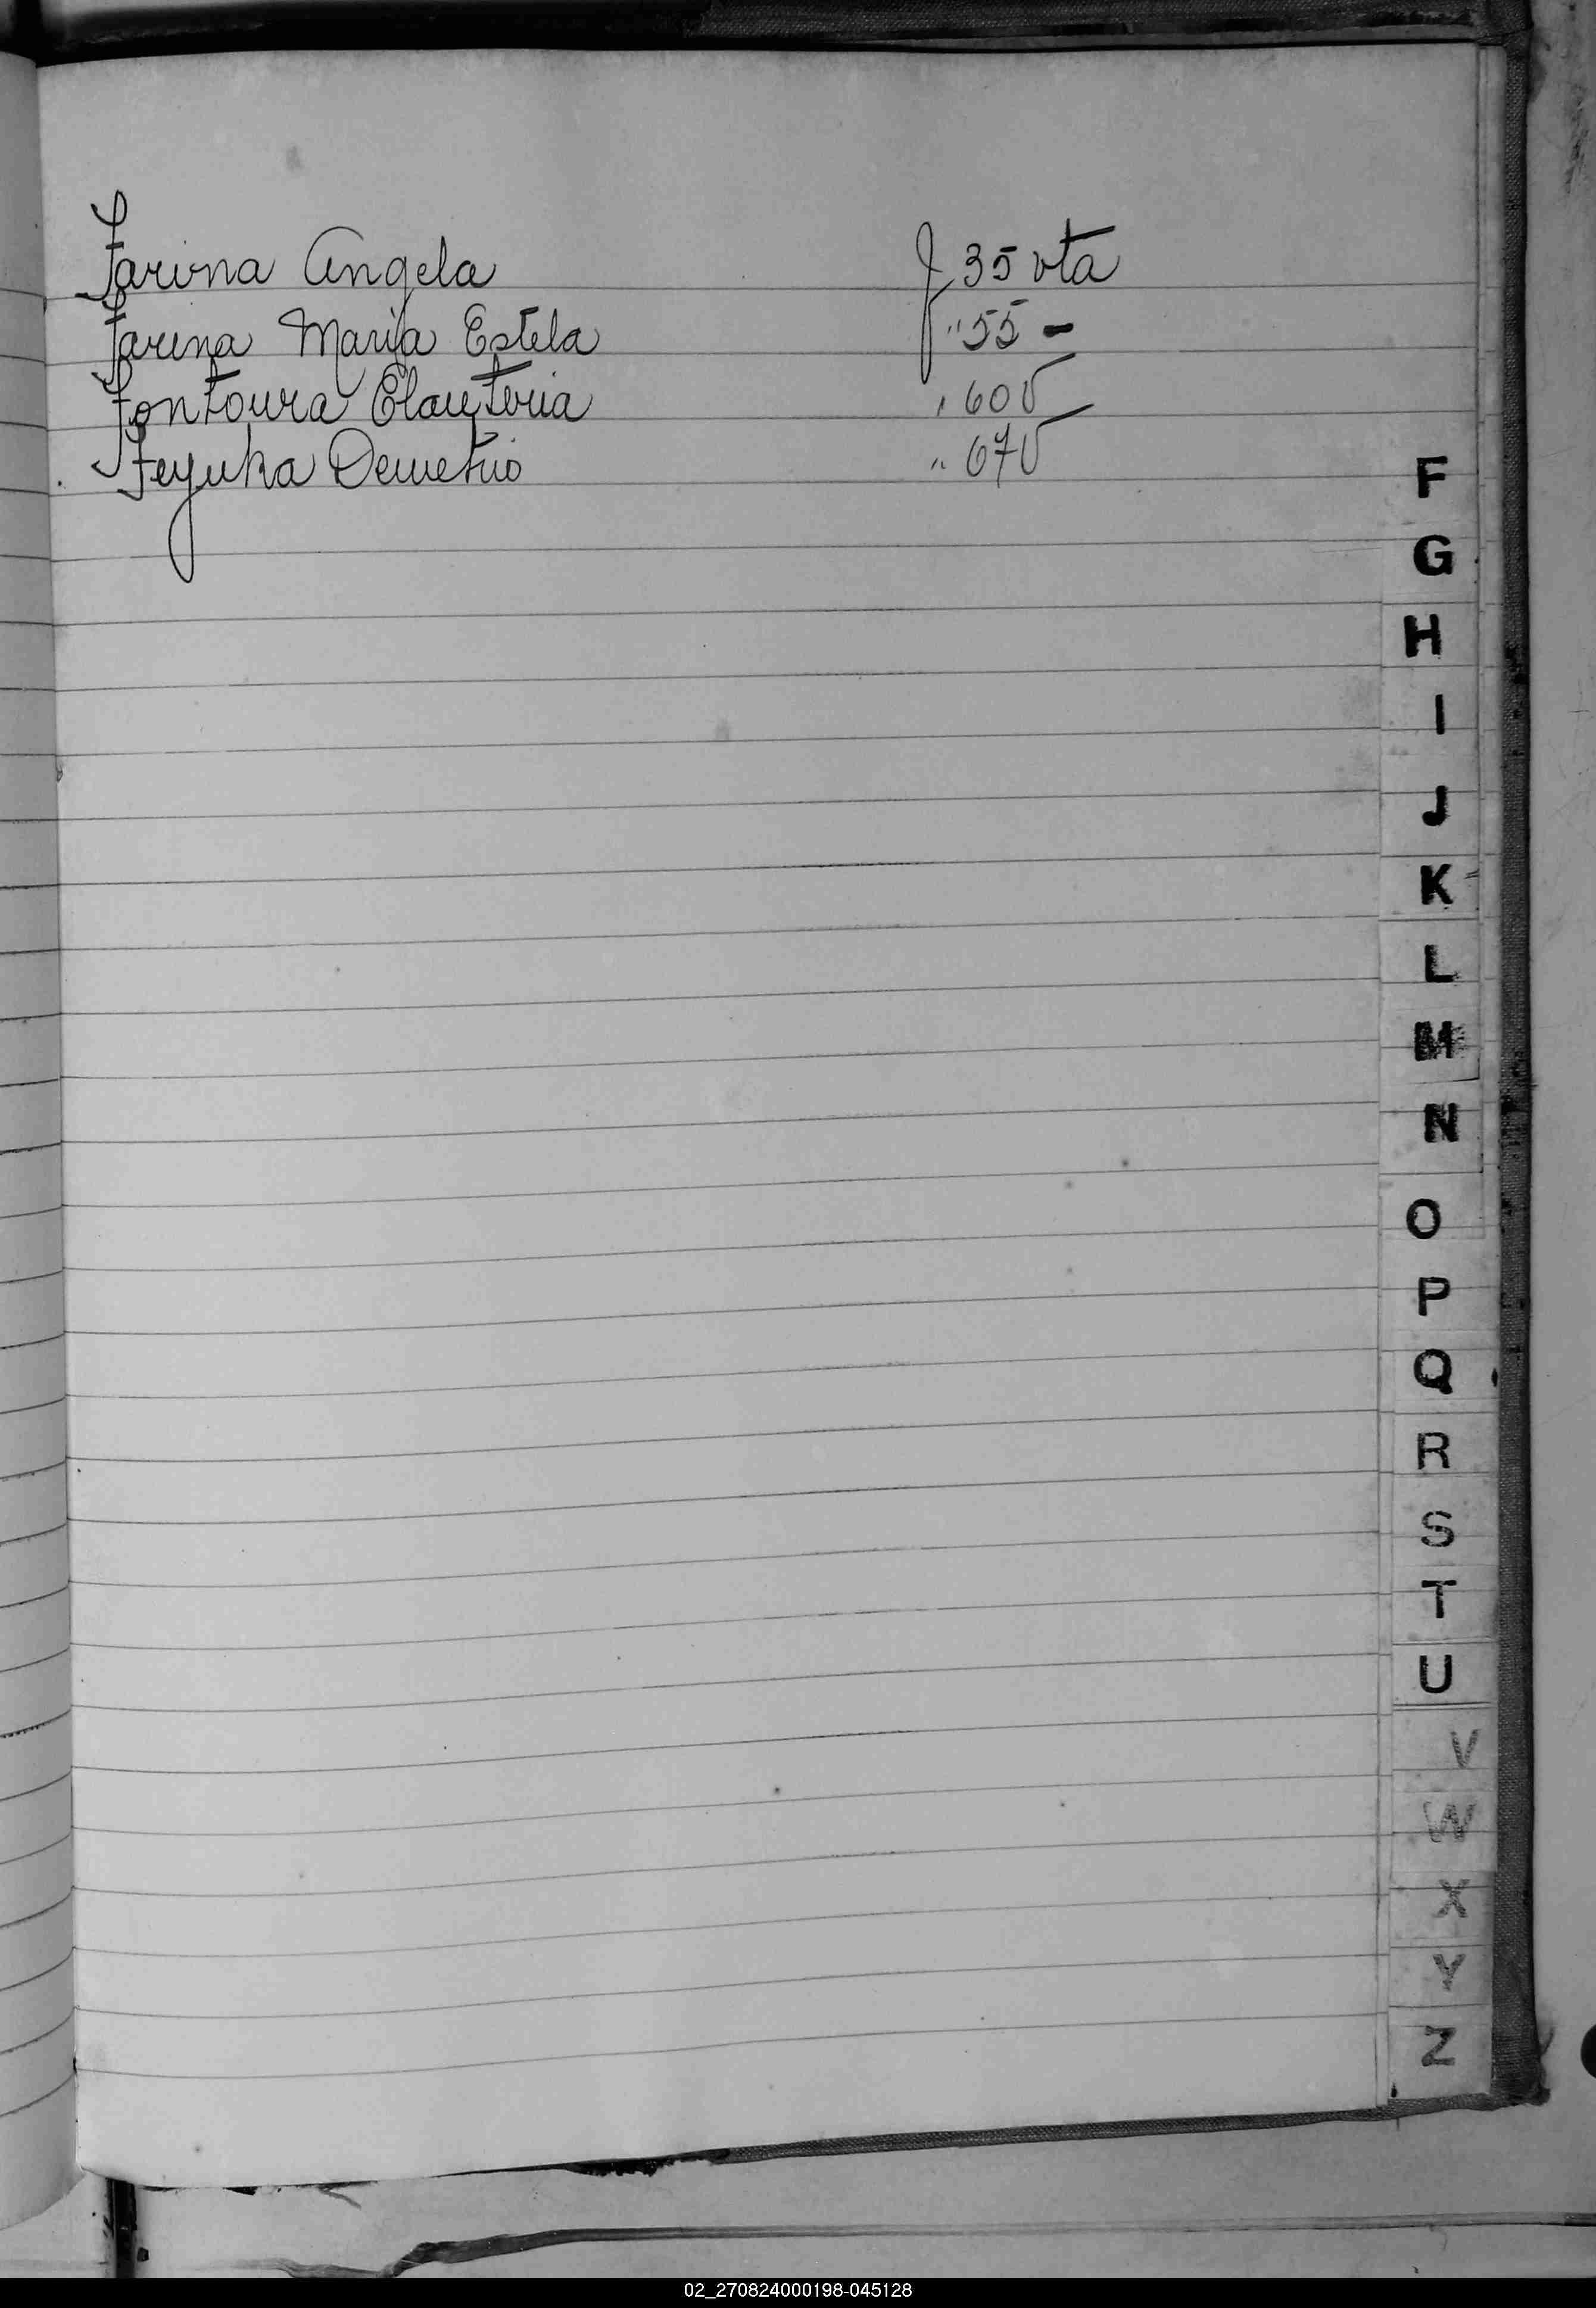 Farina Angela f 35 vta
Farina Maria Estela " 55 -
Fontoura Elauteria " 60 v
Feyuha Demetrio " 67 v
F
G
H
I
J
K
L
M
N
O
P
Q
R
S
T
U
V
W
X
Y
Z
02_270824000198-045128